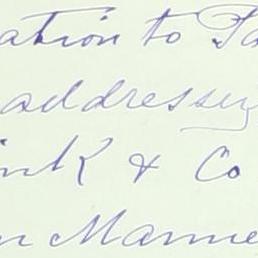 ation to Pa
addressing
ink & Co
n Manne